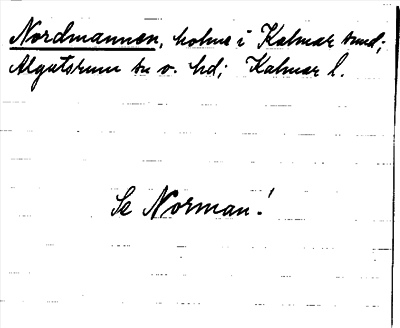 Nordmannen, holme i Kalmar sund;
Algutsrum sn o. hd; Kalmar l.
Se Norman!